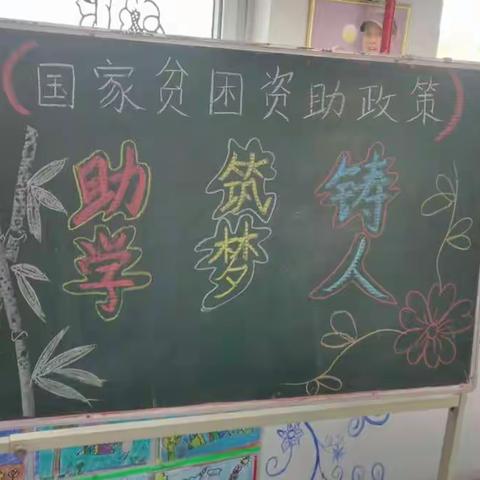 （国家贫困资助政策）
助学 筑梦 铸人